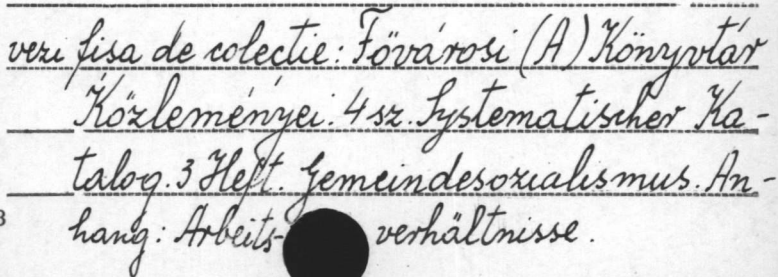 vezi fisa de colectie: Fövárosi (A) Könyvtár
Közleményei. 4 sz. Systematischer Ka-
talog. 3 Heft. Gemeindesozialismus. An-
hang: Arbeits- verhältnisse.